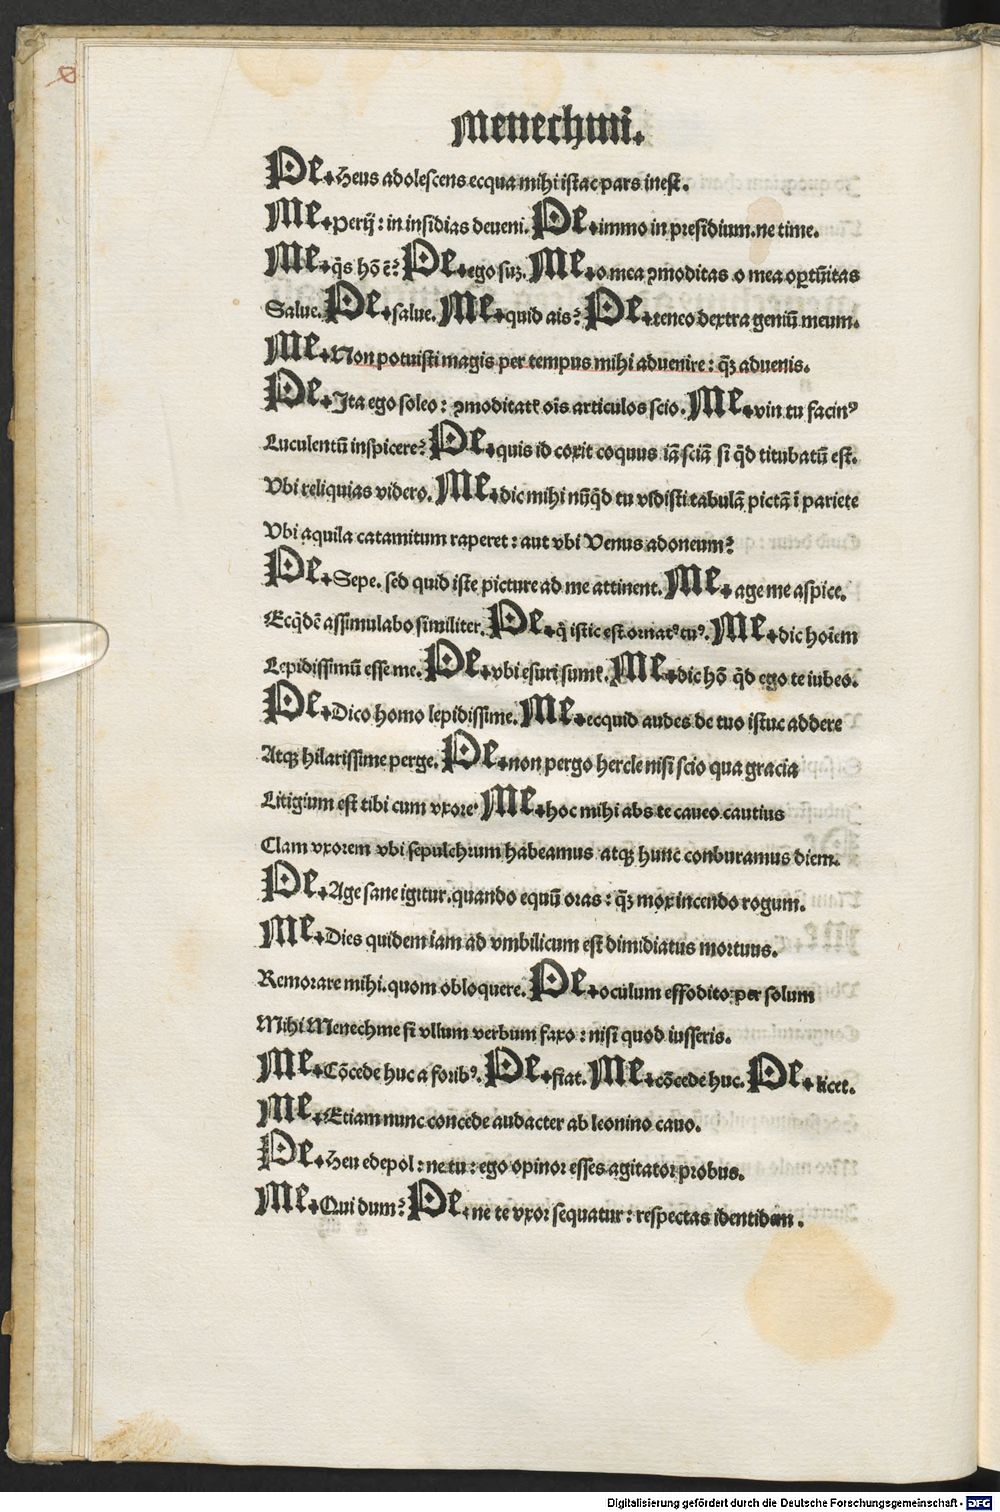 Menechmi.
Pe. Heus adolescens ecqua mihi istac pars inest.
Me. Perij: in insidias deveni. Pe. immo in presidium. ne time.
Me. q̃s hõ ẽ? Pe. ego suꝫ. Me. o mea ꝯmoditas o mea oꝑtũitas
Salve. Pe. salve. Me. quid ais? Pe. teneo dextra geniũ meum.
Me. Non potuisti magis per tempus mihi advenire: q̃ꝫ advenis.
Pe. Ita ego soleo: ꝯmoditatẽ oĩs articulos scio. Me. vin tu facinꝰ
Luculentũ inspicere? Pe. quis id coxit coquus iã sciã si q̃d titubatũ est.
Vbi reliquias videro. Me. dic mihi nũq̃d tu vidisti tabulã pictã ĩ pariete
Vbi aquila catamitum raperet: aut vbi Venus adoneum?
Pe. Sepe. sed quid iste picture ad me attinent. Me. age me aspice.
Ecq̃dẽ assimulabo similiter. Pe. q̃ istic est ornatꝰ tuꝰ. Me. dic hoĩem
Lepidissimũ esse me. Pe. vbi esuri sumꝰ. Me. dic hõ q̃d ego te iubeo.
Pe. Dico homo lepidissime. Me. ecquid audes de tuo istuc addere
Atqꝫ hilarissime perge. Pe. non pergo hercle nisi scio qua gracia
Litigium est tibi cum vxore. Me. hoc mihi abs te caveo cautius
Clam vxorem vbi sepulchrum habeamus atqꝫ hunc conburamus diem.
Pe. Age sane igitur. quando equũ oras: q̃ꝫ mox incendo rogum.
Me. Dies quidem iam ad vmbilicum est dimidiatus mortuus.
Remorare mihi. quom obloquere. Pe. oculum effodito per solum
Mihi Menechme si vllum verbum faxo: nisi quod iusseris.
Me. Cõcede huc a foribꝰ. Pe. fiat. Me. cõcede huc. Pe. licet.
Me. Etiam nunc concede audacter ab leonino cavo.
Pe. Heu edepol: ne tu: ego opinor esses agitator probus.
Me. Qui dum? Pe. ne te vxor sequatur: respectas identidem.
Digitalisierung gefördert durch die Deutsche Forschungsgemeinschaft - DFG